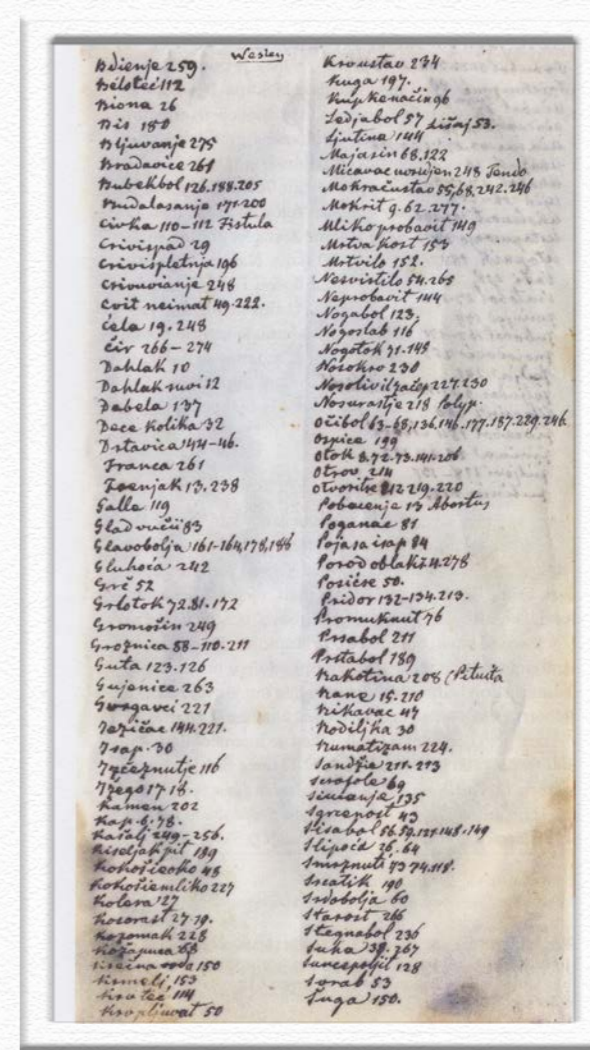 Wesley
Bdienje 259.
Bilotec 112
Biona 26
Bis 180
Bljuvanje 275
Bradavice 261
Bubekbol 126.188.205
Budalasanje 171-200
Civka 110-112 Fistula
Crivispad 29
Crivispletnja 196
Crivuvianje 248
Cvit neimat 49.222.
Ćela 19.248
Čir 266-274
Dahlak 10
Dahlak suvi 12
Debela 137
Dece kolika 32
Drtavica 44-46.
Franca 261
13.238
Galle 119
Glad vučii 83
Glavobolja 161-164,178,188
Gluhoća 242
Grč 52
Grlotok 72.81.172
Gromošin 249
Groznica 88-110.211
Guta 123.126
Gujenice 263
221
Jezičac 144.221.
Isap. 30
116
17.18.
Kamen 202
Kap. 6.78.
Kašalj 249-256.
Kiseljak pit 189
Kokošieoko 48
Kokošiemliko 227
Kolera 27
Kosorast 27.79.
228
68
150
Krmelj 153
Krvoteč 114
Krvopljuvat 50
Krvoustav 234
Kuga 197.
96
Ledjabol 57 Lišaj 53.
Ljutina 144
Majasin 68,122
Micavac 248 Tendo
Mokračustav 55,68.242.246
Mokrit 9.62.277.
Mliko probavit 149
Mrtva kost 153
Mrtvilo 152.
Nesvistilo 54.265
Neprobavit 144
Nogabol 123;
Nogoslab 116
Nogotok 71.145
Nosokrv 230
227.230
Nosurastje 218 Polyp.
Očibol 63-68,136.146.177.187.229.246.
Ospice 199
Otok 8.72.73.141.206
Otrov 214
Otvoritse 212.219.220
Pobacenje 13 Abortus
Poganac 81
Pojasa isap 84
Porod oblakš 4.278
Posiése 50.
Pridor 132-134.213.
Promuknut 76
Prsabol 211
Prstabol 189
Rakotina 208 (Pituita
Rane 15.210
Rikavac 47
Rodiljka 30
Rumatizam 224.
Sandžie 211.213
Scrofole 69
135
Sgrčenost 43
Sisabol 56.59.127.148.149
Slipoća 26.64
Smrznuti 73 74.118.
190
Srdobolja 60
Starost 266
Stegnabol 236
Suha 39.267
128
Svrab 53
Šuga 150.